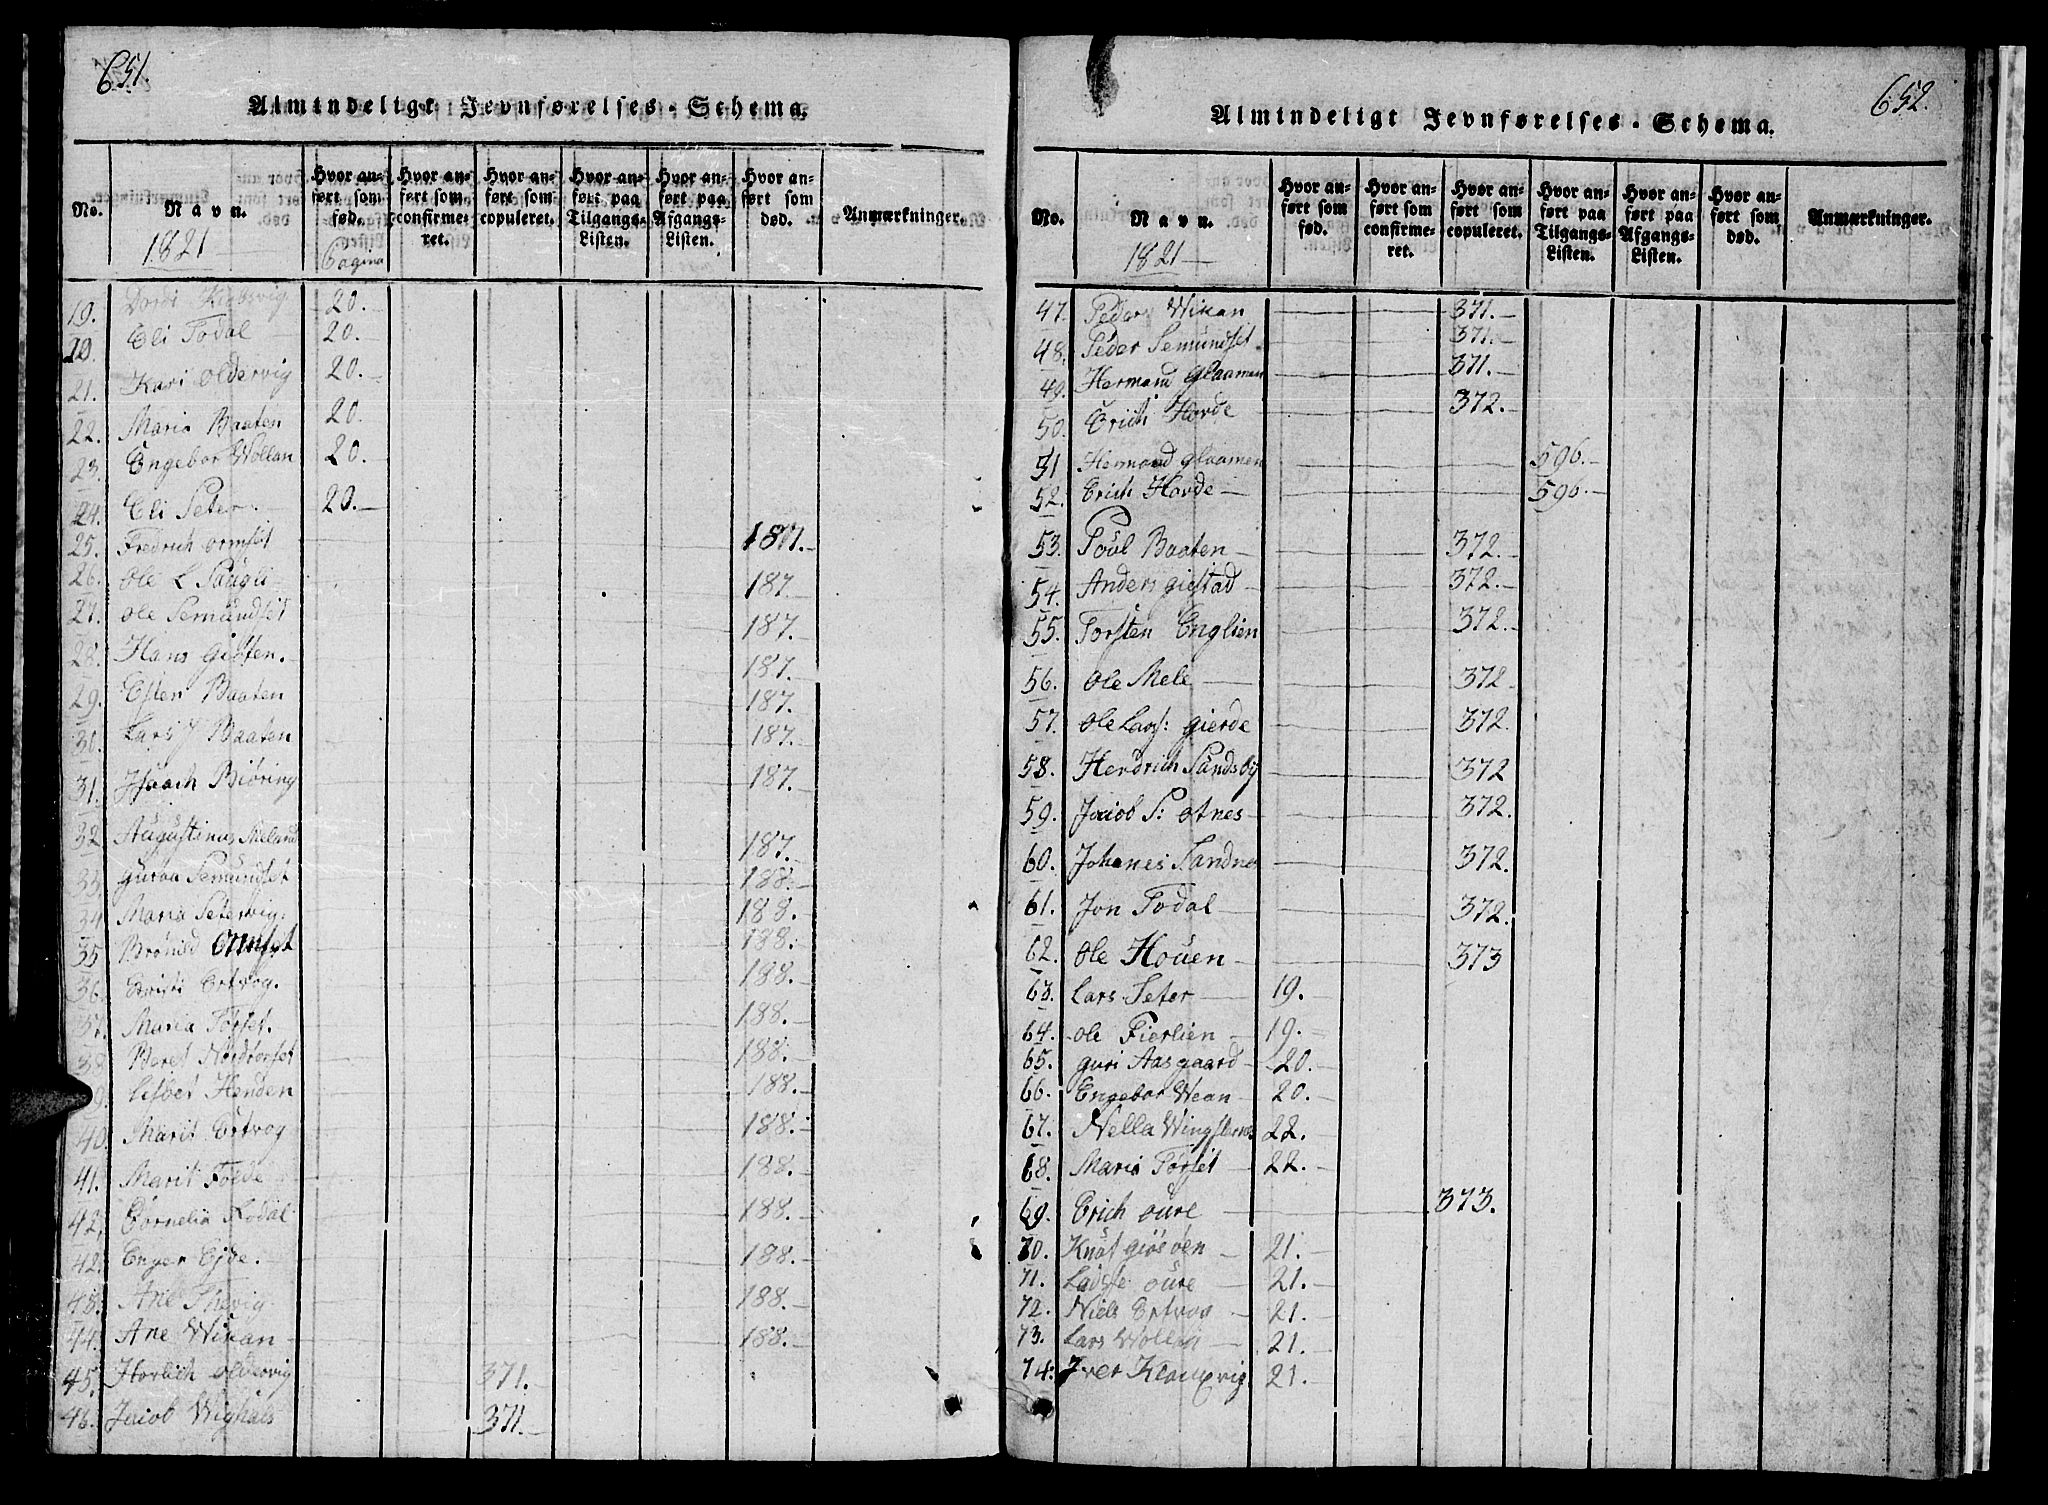 651.
Almindeligt Jevnførelses-Schema.
No. Navn. Hvor anført som fød. Hvor anført som confirmeret. Hvor anført som copuleret. Hvor anført paa Tilgangs-Listen. Hvor anført paa Afgangs-Listen. Hvor anført som død. Anmærkninger.
1821 Pagina
19. Dordi 20.
20. Eli Todal 20.
21. Kari Oldervig 20.
22. Maria Baaten 20.
23. Engebor Wollan 20.
24. Eli Seter 20.
25. Fredrich Ormset 187.
26. Ole L Saugli 187.
27. Ole Semundset 187.
28. Hans Gisten. 187.
29. Esten Baaten 187.
30. Lars J Baaten 187.
31. Isaach Biøring 187.
32 Augustinus 187.
33. Guroa Semundset 188.
34 Maria Setervig. 188.
35 Brønild Ormset 188.
36. Ertvog. 188.
37. Maria Torset. 188.
38 Beret 188.
39. Lisbet Henden 188.
40. Marit Ertvog 188.
41. Marit Folde 188.
42. Cornelia Rodal 188.
42. Enger Eide. 188.
43. Ane 188.
44. Ane Wikan 188.
45. Horlich Oldervig 371.
46. Jacob Wighals 371.
652.
Almindeligt Jevnførelses-Schema.
No. Navn. Hvor anført som fød. Hvor anført som confirmeret. Hvor anført som copuleret. Hvor anført paa Tilgangs-Listen. Hvor anført paa Afgangs-Listen. Hvor anført som død. Anmærkninger.
1821
47. Peder Wikan 371.
48. Peder Semundset 371.
49. Hermand Glaamen 371.
50. Erich Hovde 372.
51 Hermand Glaamen 596.
52. Erich Hovde 596.
53. Poul Baaten 372.
54. Anders Giestad 372.
55. Torsten Englien 372.
56. Ole Mele 372
57. Ole Lars: Gierde 372.
58. Hendrich Sandsby 372
59. Jacob S: Otnes 372.
60. Johanes Sandnes 372.
61. Jon Todal 372.
62. Ole Houen 373
63. Lars Seter 19.
64. Ole Fierlien 19.
65. Guri Aasgaard 20.
66. Engebor Wean 20.
67. Nella 22.
68. Maria Torset 22.
69. Erich Oure 373.
70. Knut Giøsøen 21.
71. Lasse Oure 21.
72. Niels Ertvog 21.
73. Lars Wollan 21.
74: Iver 21.